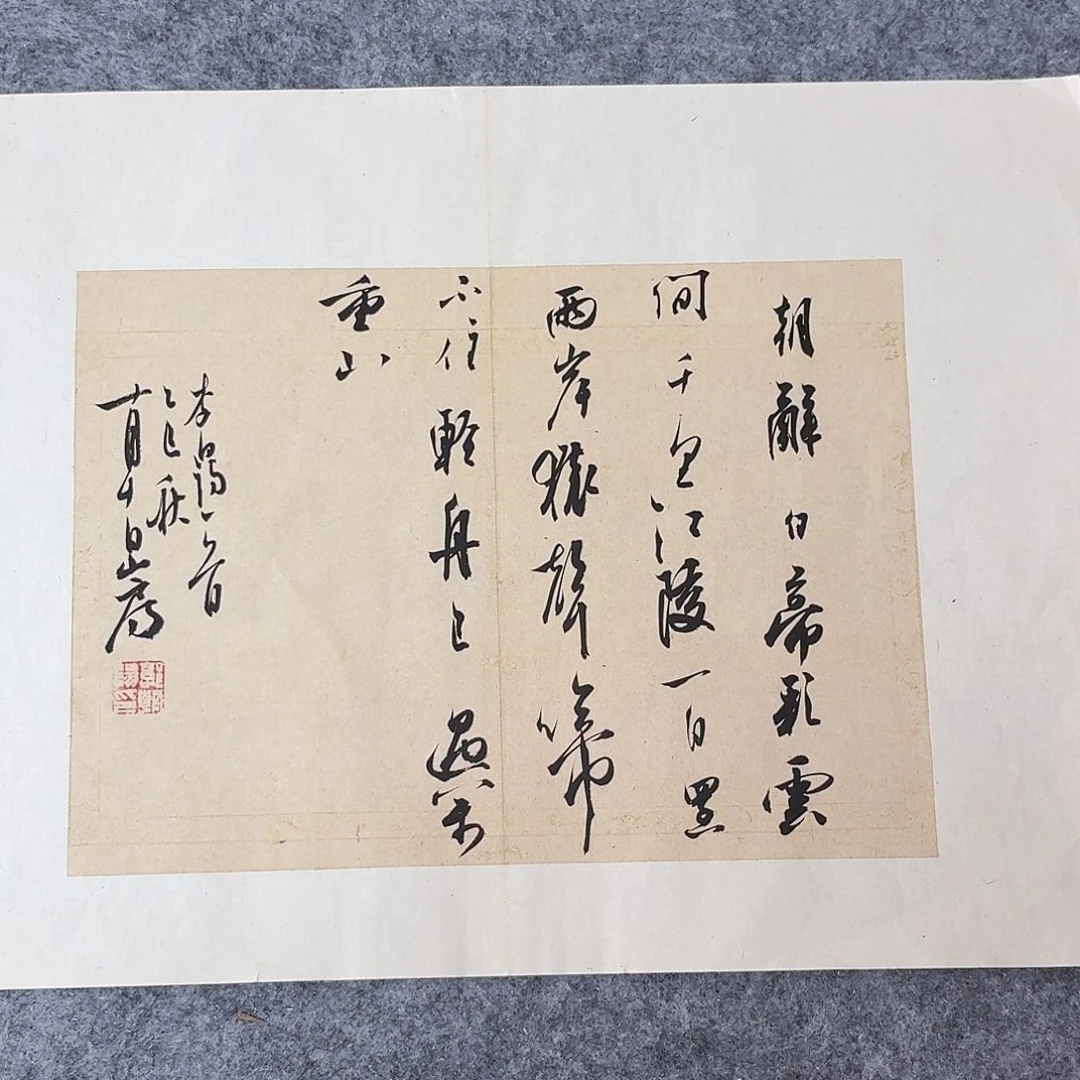 朝辭白帝彩雲
間千里江陵一日還
兩岸猿聲啼
不住輕舟已過萬
重山
李白詩一首
乙巳秋
十月十日